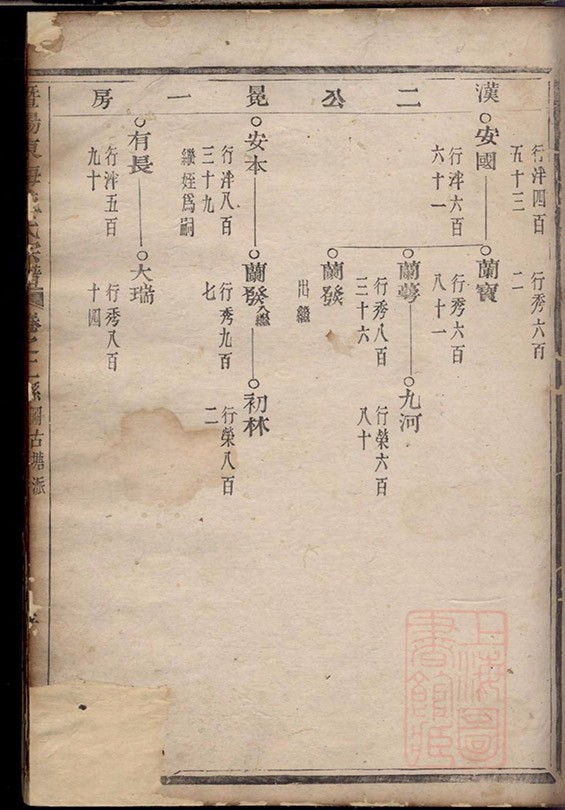 漢二公晃一房
行泮四百
五十三
行秀六百
二
安國
行泮六百
六十一
蘭寶
行秀六百
八十一
蘭蕚
行秀八百
三十六
九河
行榮六百
八十
蘭發
出繼
安本
行泮八百
三十九
繼姪爲嗣
蘭發入繼
行秀九百
七
初林
行榮八百
二
有長
行泮五百
九十
大瑞
行秀八百
十四
暨陽東
氏宗譜
卷之二
系圖古塘派
上海圖
書館